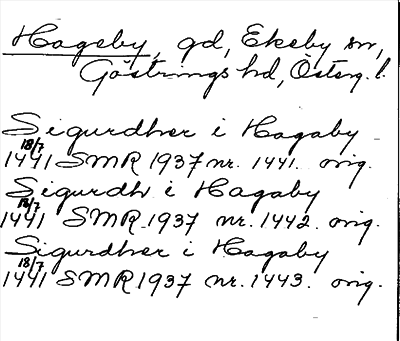 Hageby, gd, Ekeby sn,
Göstrings hd, Österg. l.
Sigurdher i Hagaby
18/7 1441 SMR 1937 nr. 1441. orig.
Sigurdh i Hagaby
18/7 1441 SMR 1937 nr. 1442. orig.
Sigurdher i Hagaby
18/7 1441 SMR 1937 nr. 1443. orig.